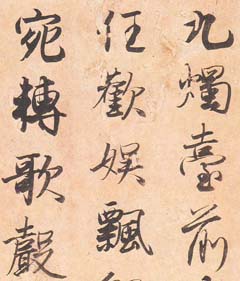 九燭臺前
任歡娛飄
宛轉歌聲